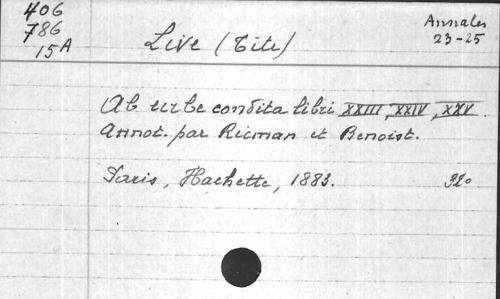 406
786
15A
Live (Tite)
Annales
23-25
Ab urbe condita libri XXIII, XXIV, XXV.
Annot. par Rieman et Benoist.
Paris, Hachette, 1883. 32º